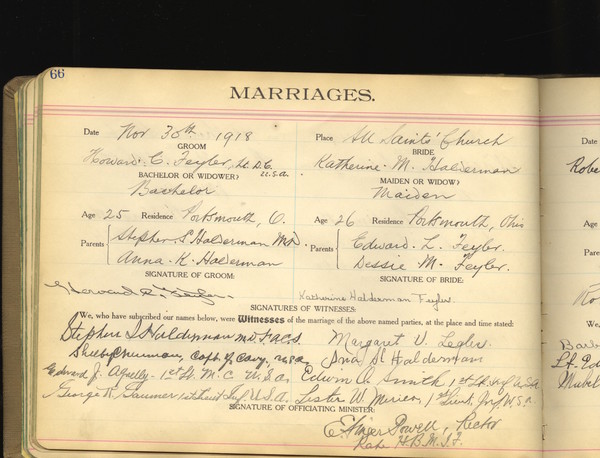 66
MARRIAGES.
Date Nov 30th 1918 Place All Saints' Church
GROOM BRIDE
Howard C. Feyler, Lt. D.C. U.S.A. Katherine M. Halderman
BACHELOR OR WIDOWER? MAIDEN OR WIDOW?
Bachelor Maiden
Age 25 Residence Portsmouth, O. Age 26 Residence Portsmouth, Ohio
Parents Stephen S Halderman MD. Parents Edward L. Feyler.
Anna K. Halderman Dessie M. Feyler.
SIGNATURE OF GROOM: SIGNATURE OF BRIDE:
Howard C. Feyler. Katherine Halderman Feyler.
SIGNATURES OF WITNESSES:
We, who have subscribed our names below, were Witnesses of the marriage of the above named parties, at the place and time stated:
Stephen S Halderman MD. F.A.C.S. Margaret V. Legler.
Capt. 7 Cavy, U.S.A. Halderman
Edward J. 1st Lt. M.C. U.S.A. Edwin A. Smith, 1st Lt. Inf. U.S.A.
George R. Inf. U.S.A. Lester W. 1st Lieut. Inf. U.S.A.
SIGNATURE OF OFFICIATING MINISTER:
Powell, Rector
Date
Robe
Age
Parents
Ro
We,
Barb
Lt. Ed
Mabel